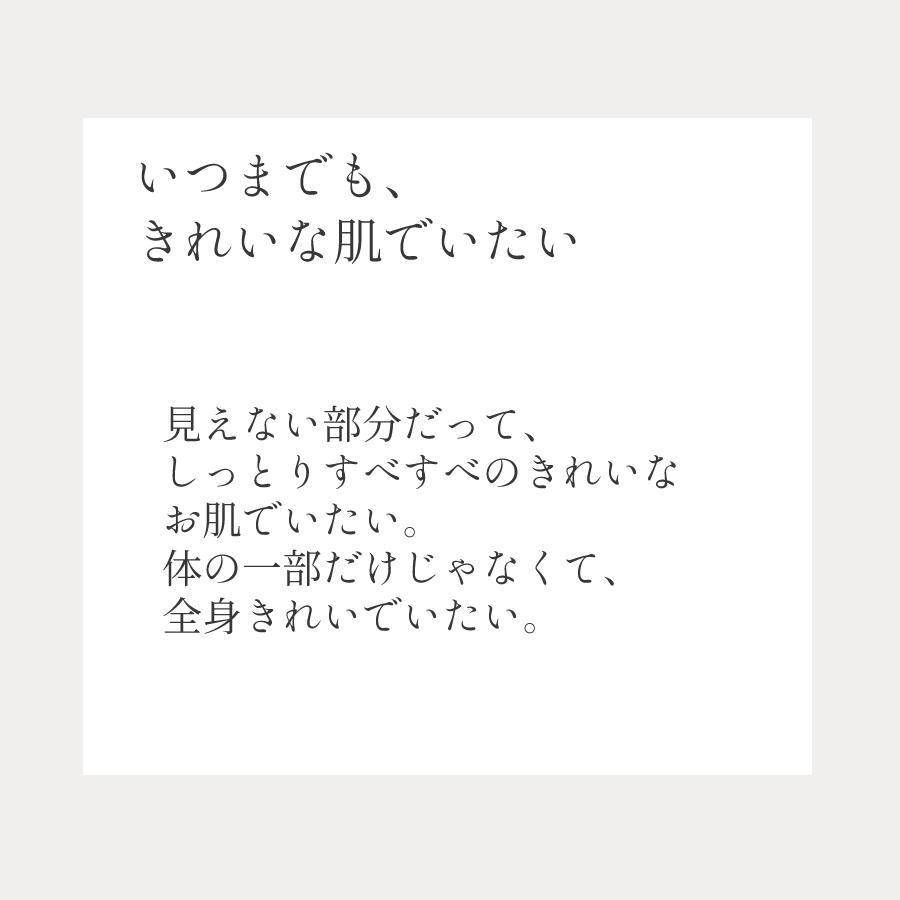 いつまでも、
きれいな肌でいたい
見えない部分だって、
しっとりすべすべのきれいな
お肌でいたい。
体の一部だけじゃなくて、
全身きれいでいたい。